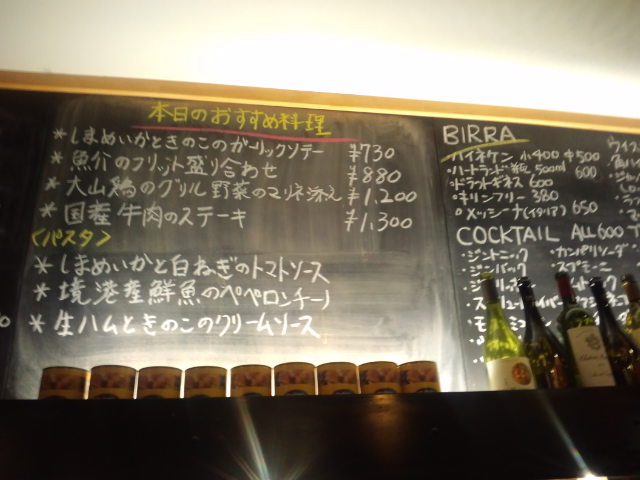 本日のおすすめ料理
* しまめいかときのこのガーリックソテー ¥730
* 魚介のフリット盛り合わせ ¥880
* 大山鶏のグリル 野菜のマリネ添え ¥1,200
* 国産牛肉のステーキ ¥1,300
<パスタ>
* しまめいかと白ねぎのトマトソース
* 境港産鮮魚のペペロンチーノ
* 生ハムときのこのクリームソース
BIRRA
・ハイネケン 小400 中500
・ハートランド 瓶 500ml 600
・ドラフトギネス 600
・キリンフリー 380
・メッシーナ(イタリア) 650
COCKTAIL ALL600
・ジントニック ・カンパリソーダ
・ジンバック ・スプモーニ